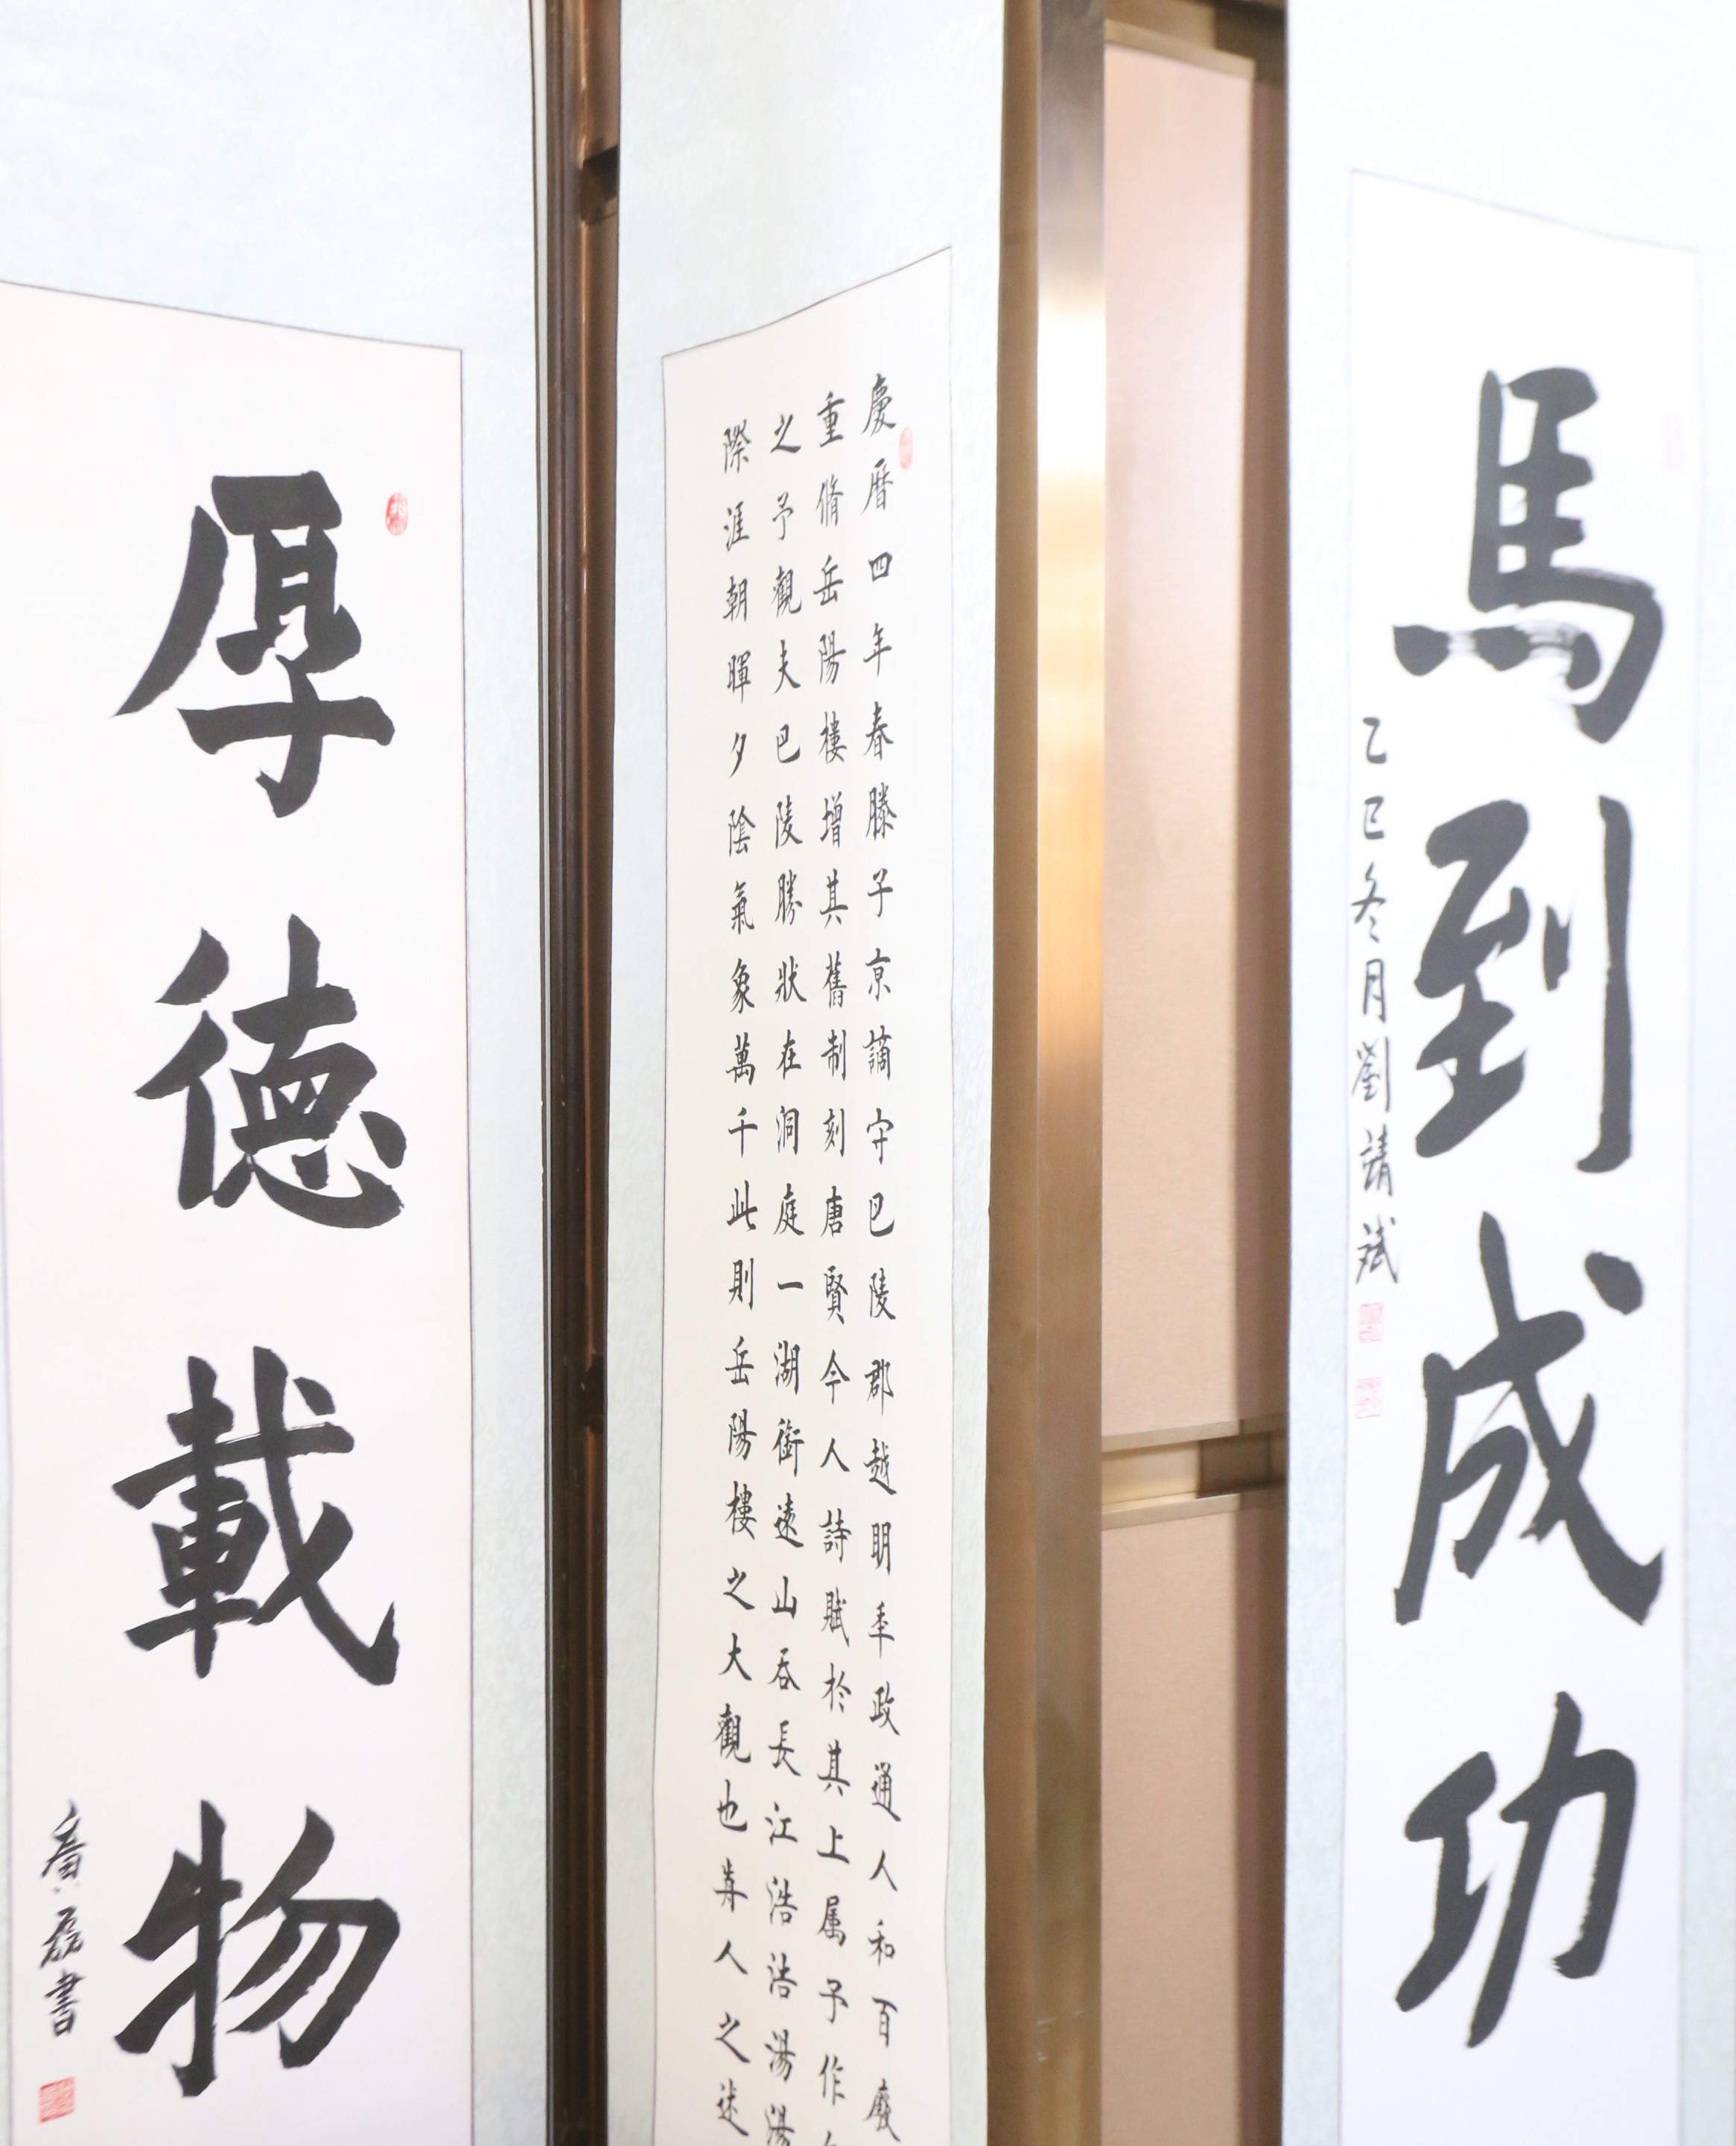 馬到成功
乙巳冬月劉靖斌
慶曆四年春滕子京謫守巴陵郡越明年政通人和百廢
重脩岳陽樓增其舊制刻唐賢今人詩賦於其上属予作
之予觀夫巴陵勝狀在洞庭一湖銜遠山吞長江浩浩湯湯
際涯朝暉夕陰氣象萬千此則岳陽樓之大觀也前人之述
厚德載物
磊書